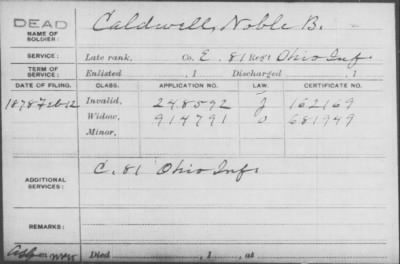 DEAD
Caldwell, Noble B.
NAME OF SOLDIER:
SERVICE: Late rank, Co. E. 81 Reg't Ohio Inf.
TERM OF SERVICE: Enlisted , 1 Discharged , 1
DATE OF FILING. CLASS. APPLICATION NO. LAW. CERTIFICATE NO.
1878 Feb 12 Invalid, 248592 J 162169
Widow, 914791 681949
Minor,
ADDITIONAL SERVICES: C. 81 Ohio Inf.
REMARKS:
Died , 1 , at